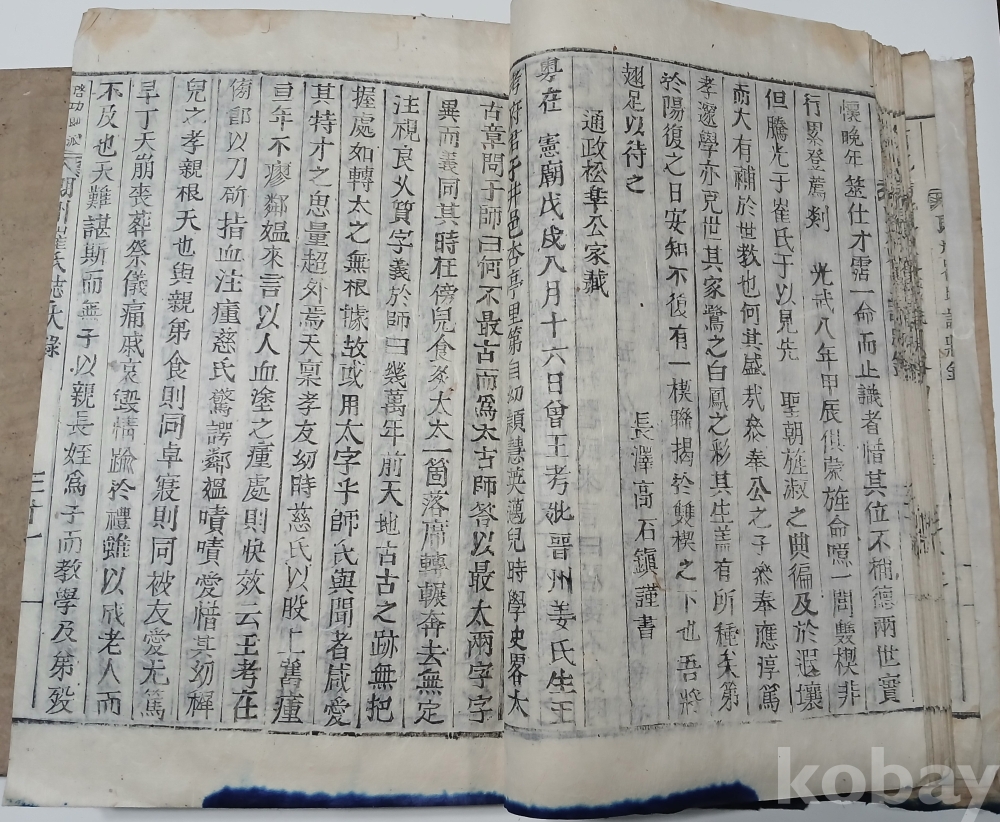 懷晩年筮仕才霑一命而止識者惜其位不稱德兩世實
行累登薦剡 光武八年甲辰俱蒙旌命噫一閭雙楔非
但騰光于崔氏于以見先 聖朝旌淑之典徧及於遐壤
而大有補於世敎也何其盛哉叅奉公之子叅奉應淳篤
孝邃學亦克世其家驚之白鳳之彩其生盖有所種矣第
於陽復之日安知不復有一楔聯揭於雙楔之下也吾將
翹足以待之
長澤高石鎭謹書
通政松華公家藏
粤在 憲廟戊戌八月十六日曾王考妣晋州姜氏生王
考府君于井邑杏亭里第自幼頴慧英邁兒時學史畧太
古章問于師曰何不最古而爲太古師答以最太兩字字
異而義同其時在傍兒食炙太太一箇落席轉輾奔去無定
注視良久質字義於師曰幾萬年前天地古古之跡無把
握處如轉太之無根據故或用太字乎師氏與聞者咸愛
其特才之思量超邻焉天禀孝友幼時慈氏以股上舊瘇
百年不瘳鄰媼來言以人血塗之瘇處則快效云王考在
傍卽以刀斫指血注瘇慈氏驚諤鄰媪嘖嘖愛惜其幼穉
兒之孝親根天也與親弟食則同卓寢則同被友愛尤篤
早丁天崩喪葬祭儀痛戚哀毁情踰於禮雖以成老人而
不及也天難諶斯而無子以親長姪爲子而敎學及弟歿
崔氏誌大錄
kobay